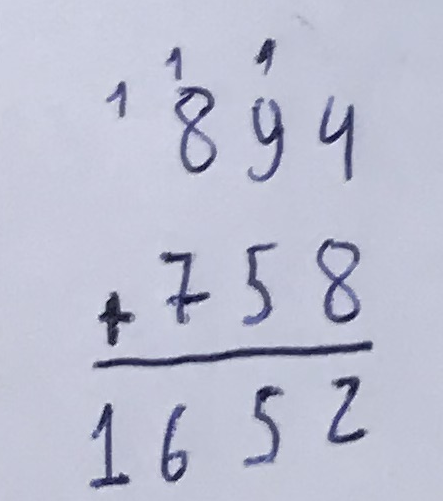 1 1 1
894
+ 758
1652